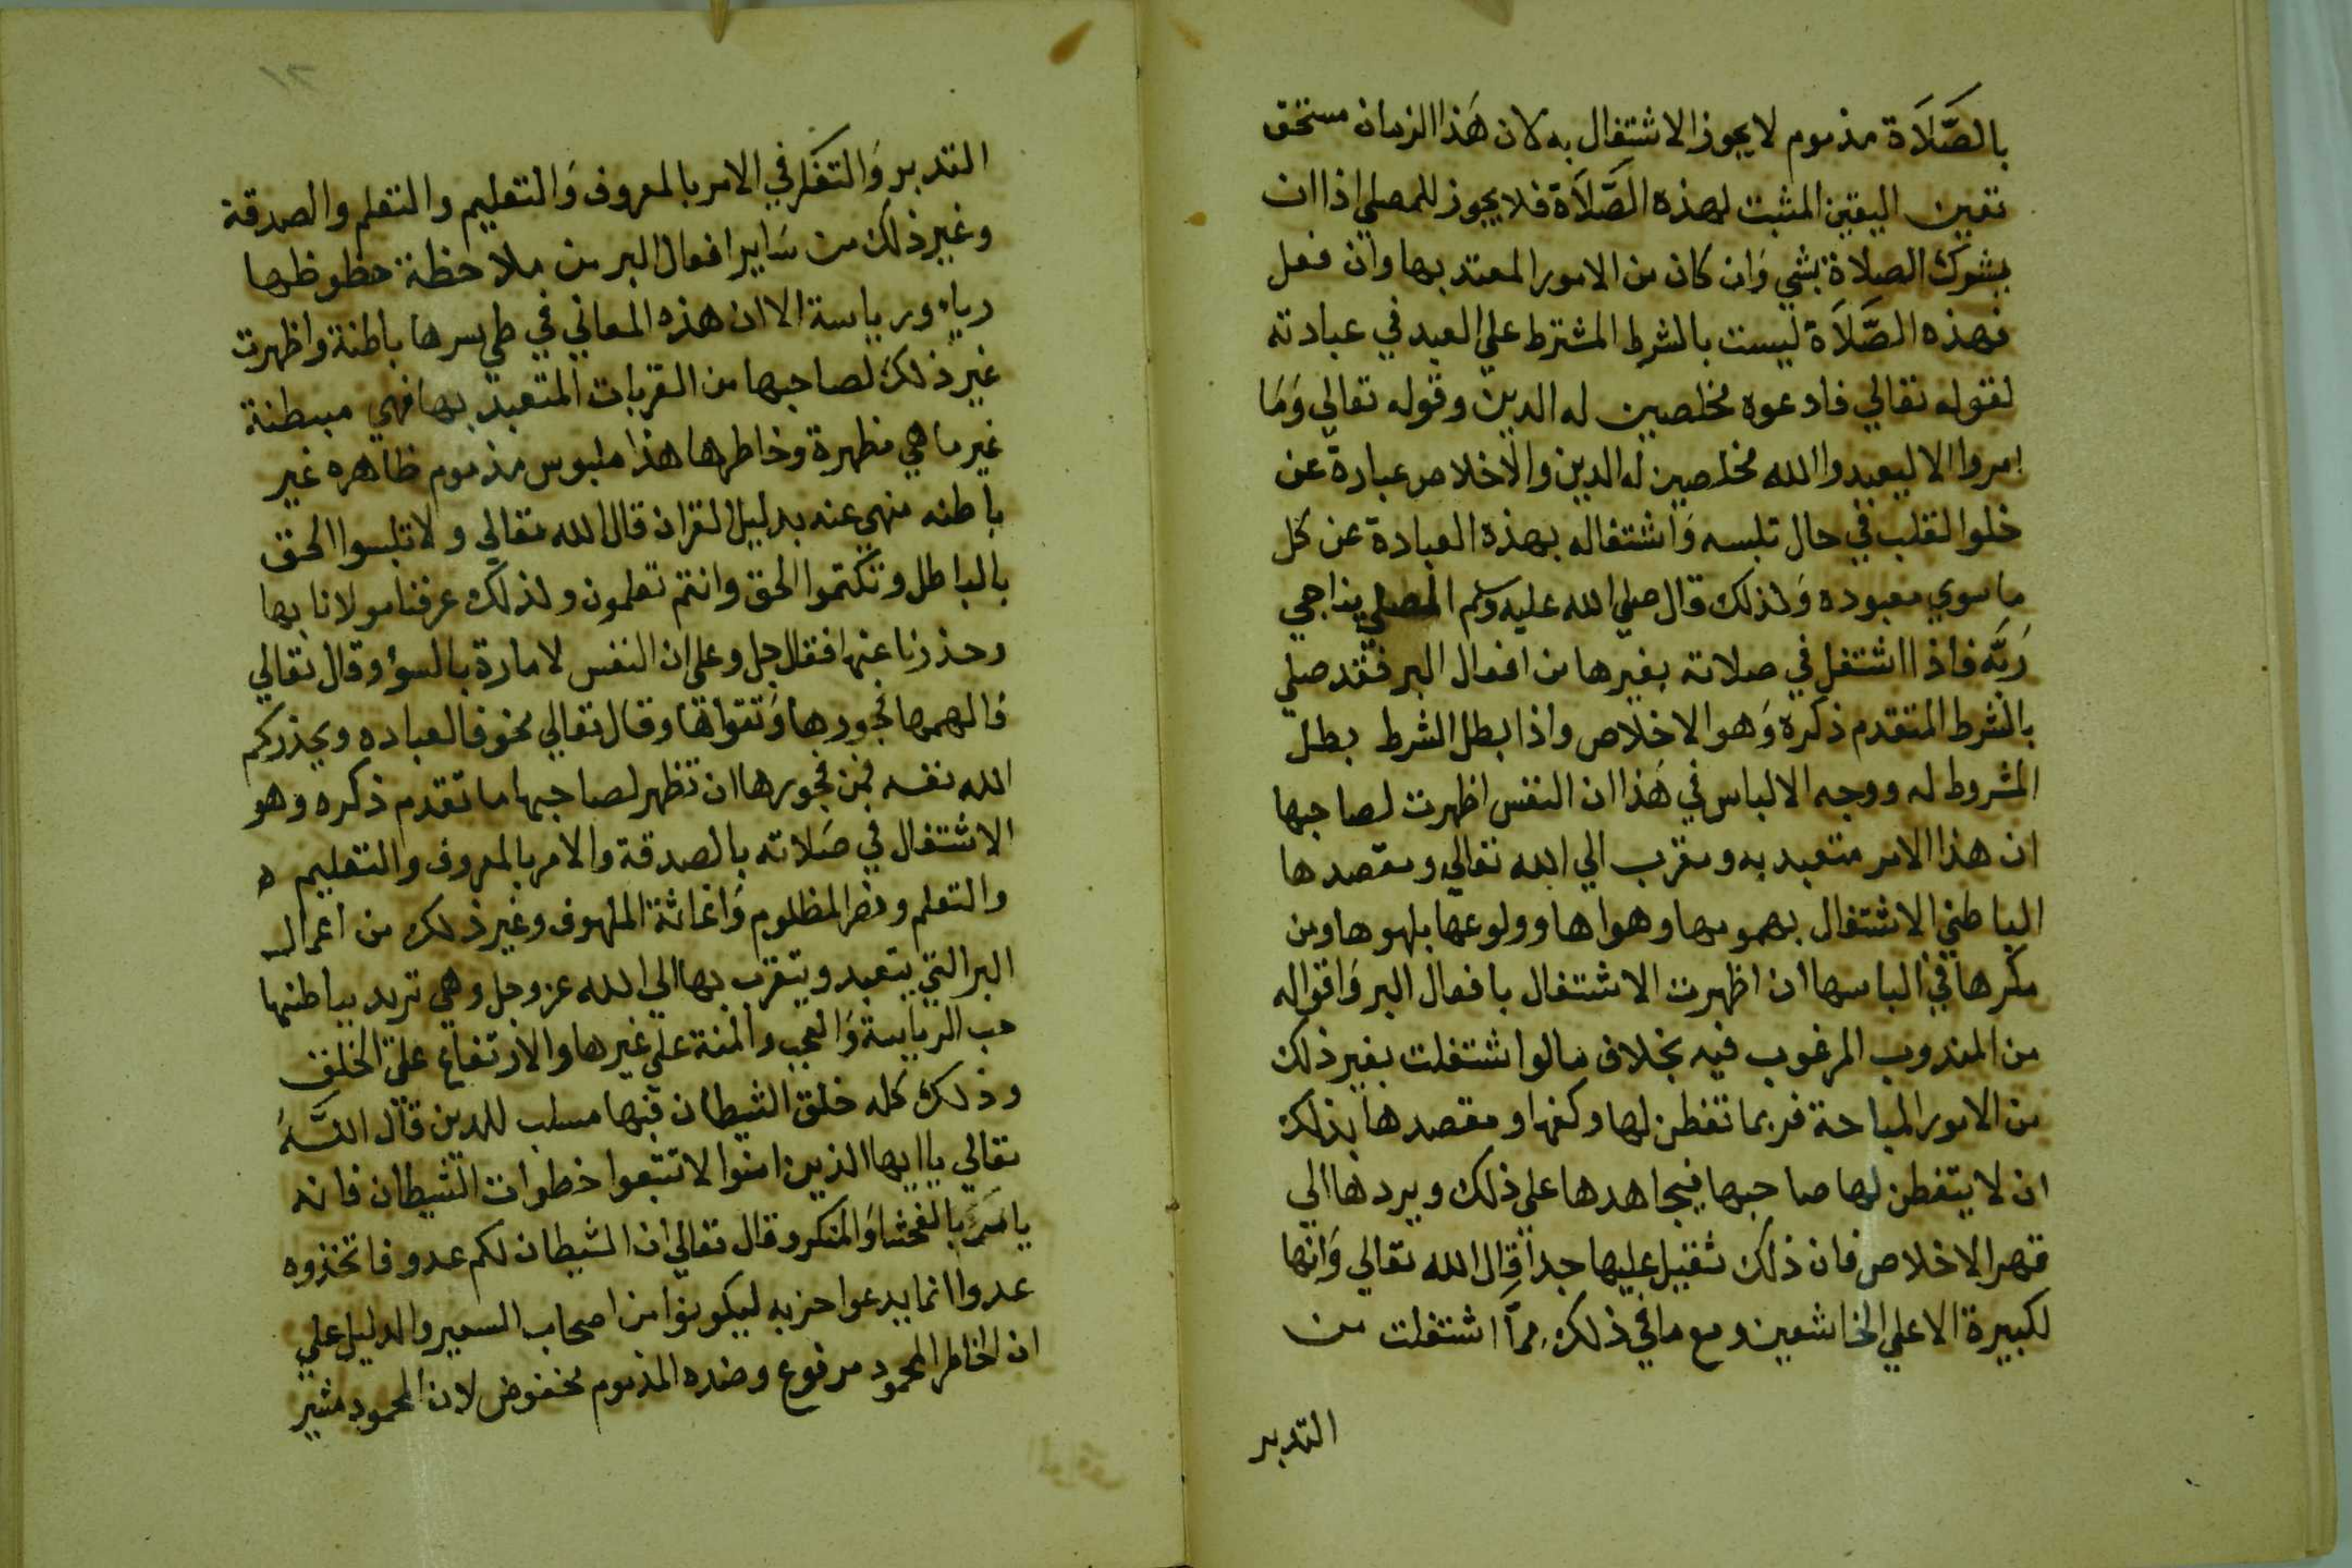 بالصَّلَاة مذموم لا يجوز الاشتغال به لان هَذا الزمان مستحق
تعين اليقين المثبت لهذه الصَّلَاة فلا يجوز للمصلي اذا ان
يشرك الصلاة بشي وَان كان من الامور المعتد بها وان فعل
فهذه الصَّلَاة ليست بالشرط المشترط علي العبد في عبادته
لقوله تعالي فادعوه مخلصين له الدين وقوله تعالي وَمَا
امروا الا ليعبدوا الله مخلصين له الدين والاخلاص عبارة عن
خلو القلب في حال تلبسه وَاشتغاله بهذه العبادة عن كل
ما سوي معبوده وَلذلك قال صلي الله عليه وسلم المصلي يناجي
رَبَّه فاذا اشتغل في صلاته بغيرها من افعال البر فقد صلي
بالشرط المتقدم ذكره وَهو الاخلاص واذا بطل الشرط بطل
المشروط له ووجه الالباس في هَذا ان النفس اظهرت لصاحبها
ان هذا الامر متعبد به ومقرب الي الله تعالي ومقصدها
الباطني الاشتغال بهمومها وهواها وولوعها بلهوها ومن
مكرها في الباسها ان اظهرت الاشتغال بافعال البر وَاقواله
من المندوب المرغوب فيه بخلاف ما لو اشتغلت بغير ذلك
من الامور المباحة فربما تفطن لها وكفها ومقصدها بذلك
ان لا يتفطن لها صاحبها فيجاهدها علي ذلك ويردها الي
قهر الاخلاص فان ذلك ثقيل عليها جدا قال الله تعالي وَانها
لكبيرة الا علي الخاشعين ومع ما في ذلك مما اشتغلت من
التدبر
التدبر وَالتفكر في الامر بالمعروف وَالتعليم والتعلم والصدقة
وغير ذلك من سَاير افعال البر من ملاحظة حظوظها
رياء ورياسة الا ان هذه المعاني في طي سرها باطنة واظهرت
غير ذلك لصاحبها من القربات المتعبد بها فهي مبطنة
غير ما هي مظهرة وخاطرها هذا ملبوس مذموم ظاهره غير
باطنه منهي عنه بدليل القران قال الله تعالي ولا تلبسوا الحق
بالباطل وتكتموا الحق وانتم تعلمون ولذلك عرفنا مولانا بها
وحذرنا عنها فقال جل وعلي ان النفس لامارة بالسوء وقال تعالي
فالهمها فجورها وَتقواها وقال تعالي مخوفا لعباده ويحذركم
الله نفسه فمن فجورها ان تظهر لصاحبها ما تقدم ذكره وهو
الاشتغال في صَلاته بالصدقة والامر بالمعروف والتعليم ه
والتعلم ونصر المظلوم وَاغاثة الملهوف وغير ذلك من اعمال
البر التي يتعبد ويتقرب بها الي الله عز وجل وهي تريد بباطنها
حب الرياسة وَالعجب والمنة علي غيرها والارتفاع علي الخلق
وذلك كله خلق الشيطان فيها مسلب للدين قال اللَّهُ
تعالي يا ايها الذين امنوا لا تتبعوا خطوات الشيطان فانه
يامَرَ بالفحشا وَالمنكر وقال تعالي ان الشيطان لكم عدو فاتخذوه
عدوا انما يدعوا حزبه ليكونوا من اصحاب السعير والدليل علي
ان الخاطر المحمود مرفوع وضده المذموم مخفوض لان المحمود مشير